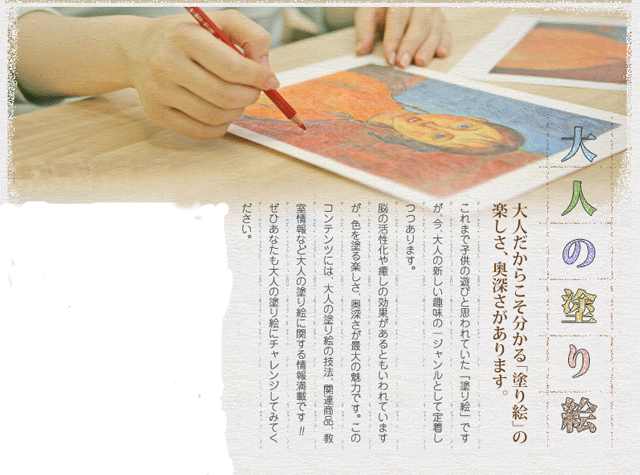 大人の塗り絵
大人だからこそ分かる「塗り絵」の
楽しさ、奥深さがあります。
これまで子供の遊びと思われていた「塗り絵」です
が、今、大人の新しい趣味の一ジャンルとして定着し
つつあります。
脳の活性化や癒しの効果があるともいわれています
が、色を塗る楽しさ、奥深さが最大の魅力です。この
コンテンツには、大人の塗り絵の技法、関連商品、教
室情報など大人の塗り絵に関する情報満載です!!
ぜひあなたも大人の塗り絵にチャレンジしてみてく
ださい。